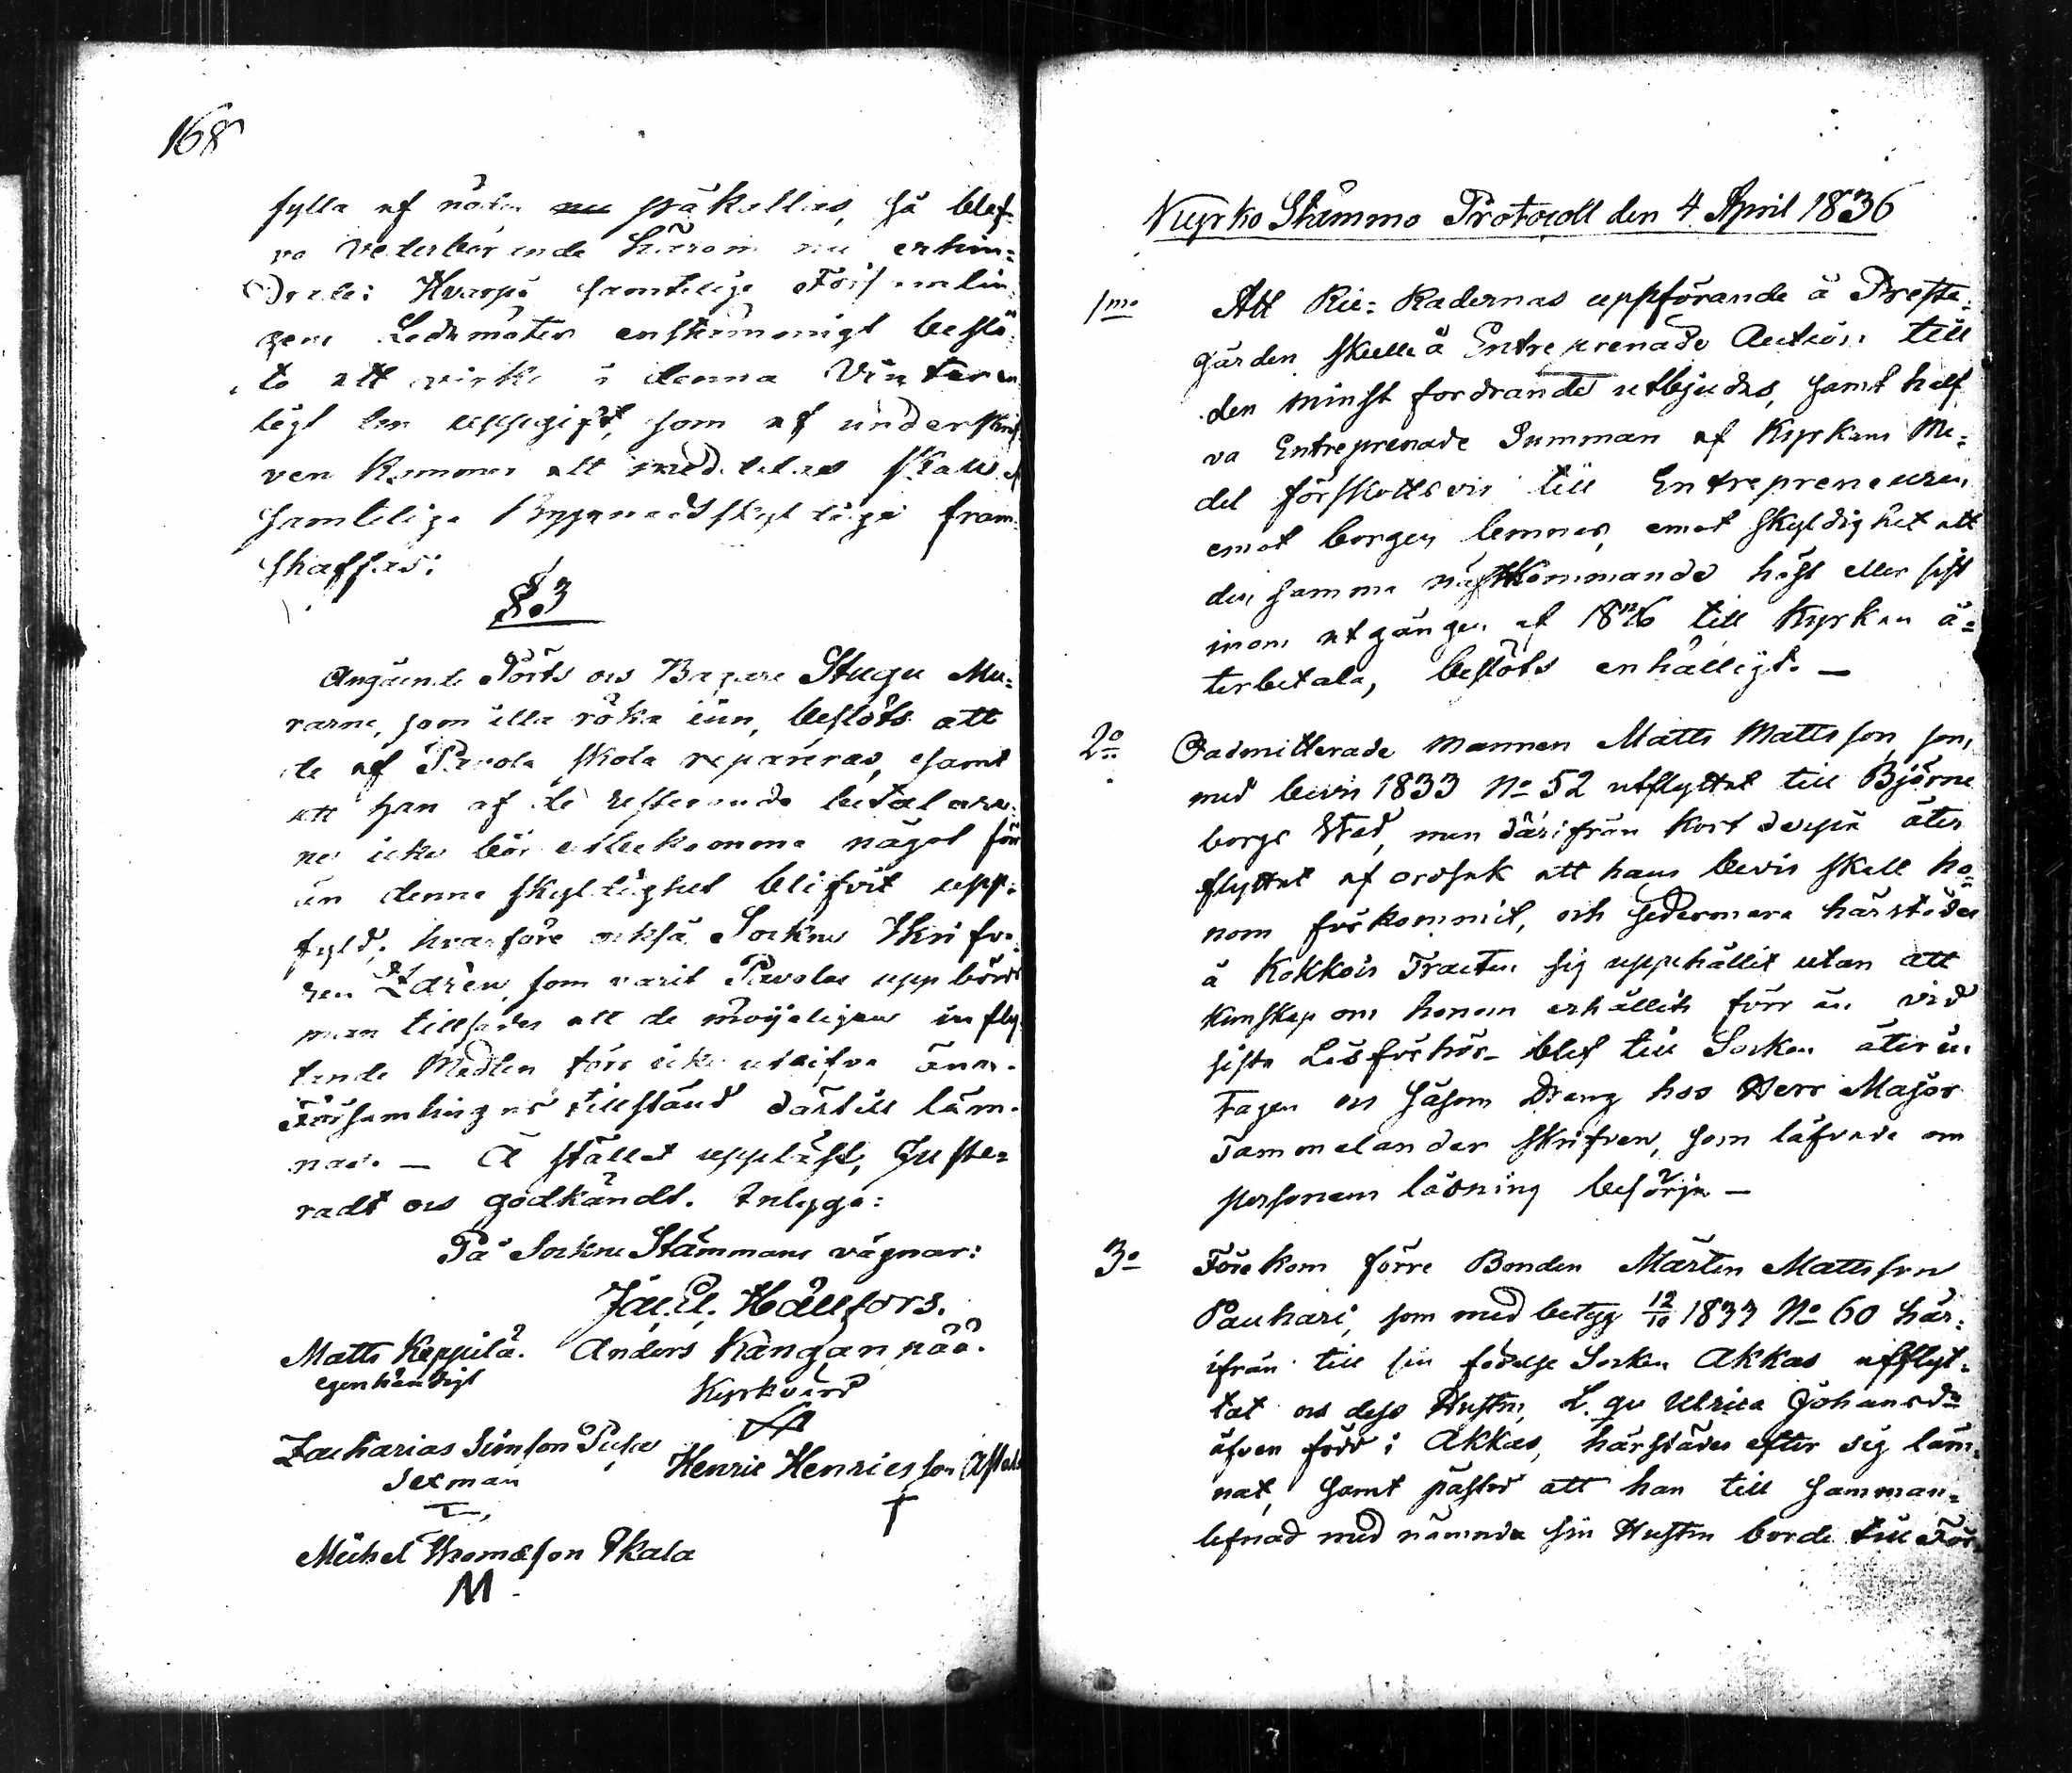 168
fylla af nöden nu påkallas, så blef-
vo vederbörande härom nu erhin-
drade: Hvarpå samtelige Församlin-
gens Ledamöter enstämmigt beslö-
to att virke i denna Vinter en
ligt den uppgift, som af underskrif
ven kommer att meddelas skall af
samtelige Byggnadsskyldige fram-
skaffas:
§.3
Angående Pörts och Bagare Stugu Mu-
rarne, som illa röka in, beslöts att
de af Pavola skola repareras, samt
att han af de resterande betalare-
ne icke bör utbekomma något förr
än denna skyldighet blifvit upp-
fyld; hvarföre också Sockne Skrifva-
ren Idrén, som varit Pavolas uppbörds
man tillsades att de möjeligen infly
tande Medlen förr icke utgifva än
Församlingens tillstånd därtill läm-
nas. — Å stället uppläst, Juste-
radt och godkändt. Intyga:
På Sockne Stämmans vägnar:
Jac. El. Hällfors.
Matts Keppilä. Anders Kangannää.
egenhändigt Kyrkvärd
Zacharias Simson Puha Henric Henricsson
Sexman
Michel Thomasson Skala
M
Kyrko Stämmo Protocoll den 4 April 1836
1mo Att Rie-Radernas uppförande å Preste-
gården skulle å Entreprenade Auction till
den minst fordrande utbjudas, samt half
va Entreprenade Summan af Kyrkans Me-
del förskottsvis till Entrepreneuren
emot borgen lemnas, emot skyldighet att
den samma nästkommande höst eller sist
inom utgången af 1836 till Kyrkan å-
terbetala, beslöts enhälligt. —
2o Oadmitterade mannen Matts Mattsson, som
med bevis 1833 No 52 utflyttat till Björne
borgs Stad, men därifrån kort derpå åter
flyttat af orsak att hans bevis skall ho-
nom förkommit, och sedermera härstädes
å Kokkois Tracten sig uppehållit utan att
kunskap om honom erhållits förr än vid
sista Läsförhör- blef till Socken åter in
tagen och såsom Dreng hos Herr Major
Tammelander skrifven, som låfvade om
personens läsning besörja —
3o Förekom förre Bonden Mårten Mattsson
Pauhari, som med betyg 12/10 1833 No 60 här-
ifrån till sin födelse Socken Akkas afflyt-
tat och dess Hustru, L. qv Ulrica Johansdr
äfven född i Akkas, härstädes efter sig läm-
nat, samt påstod att han till samman-
lefnad med nämnda sin Hustru borde till För